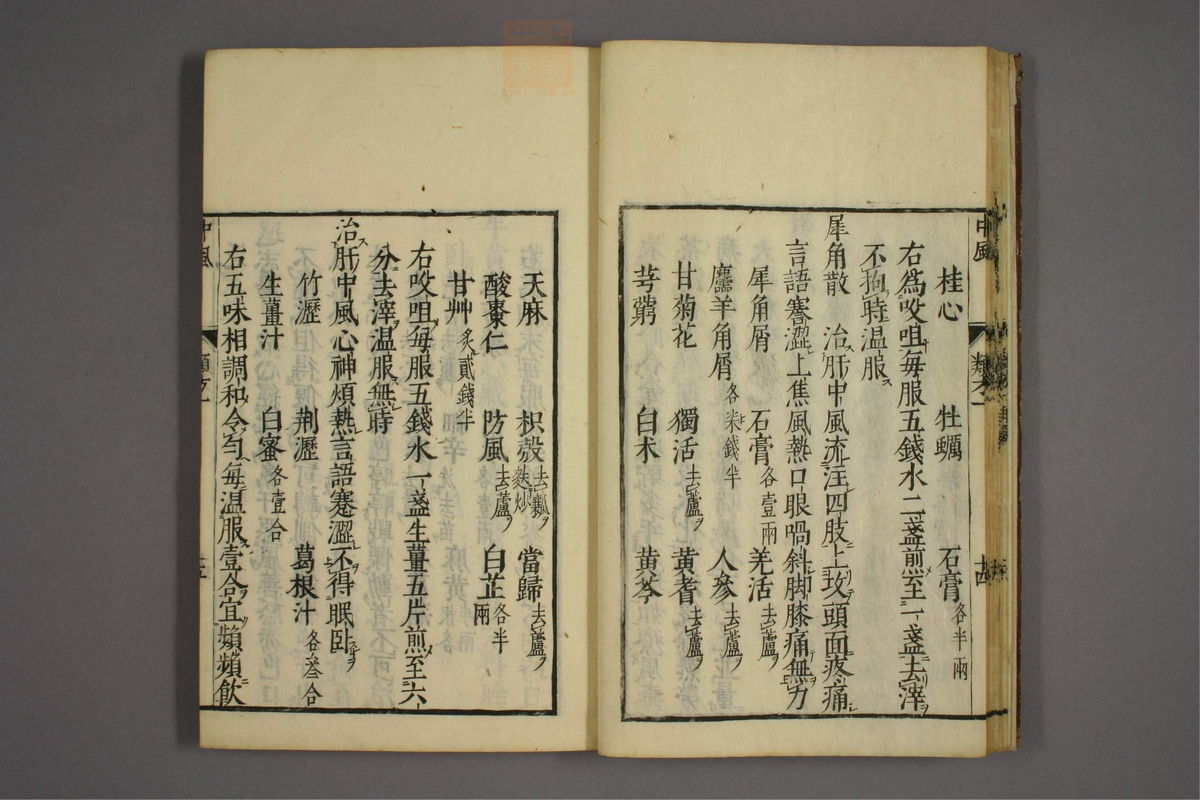 中風 類之一 十四
桂心 牡蠣 石膏各半兩
右為㕮咀每服五錢水二盞煎至一盞去滓
不拘時温服
犀角散 治肝中風流注四肢上攻頭面疼痛
言語蹇澀上焦風熱口眼喎斜脚膝痛無力
犀角屑 石膏各壹兩 羌活去蘆
麢羊角屑各柒錢半 人參去蘆
甘菊花 獨活去蘆 黃耆去蘆
芎藭 白术 黃芩
天麻 枳殼去瓤麩炒 當歸去蘆
酸棗仁 防風去蘆 白芷各半兩
甘艸炙貳錢半
右㕮咀每服五錢水一盞生薑五片煎至六
分去滓温服無時
治肝中風心神煩熱言語蹇澀不得眠卧
竹瀝 荆瀝 葛根汁各叁合
生薑汁 白蜜各壹合
右五味相調和令匀每温服壹合宜頻頻飲
中風 類之一